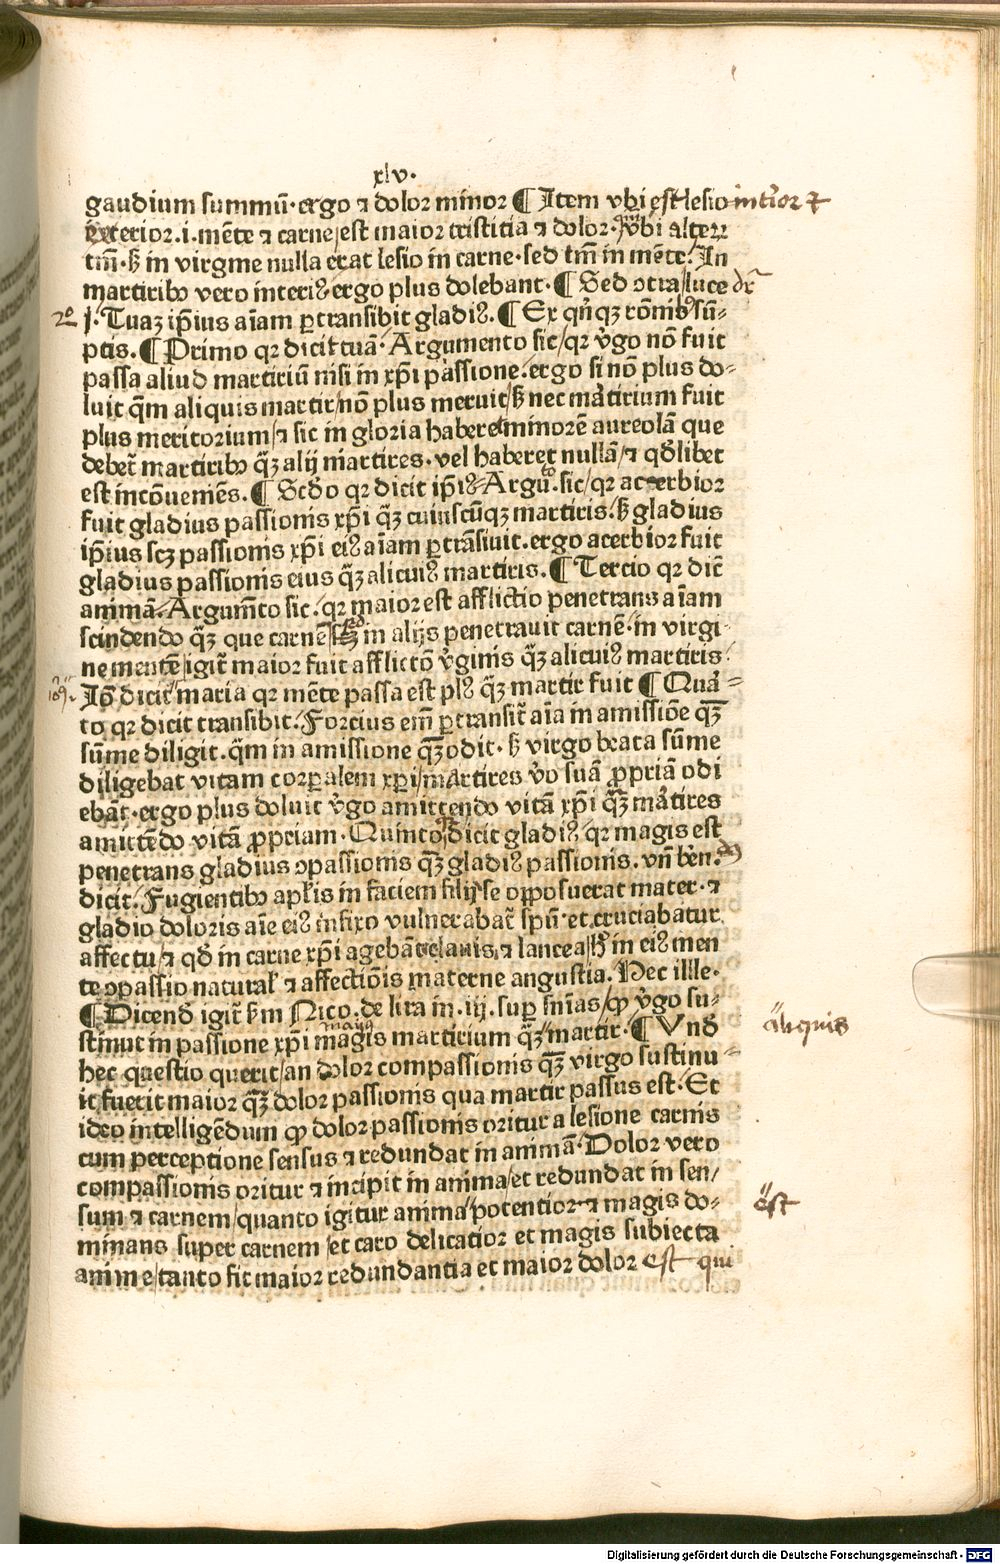 xlv.
gaudium summū. ergo ⁊ dolor minor ¶ Item vbi est lesio inti᷑or ⁊
exterior .i. mēte ⁊ carne est maior tristitia ⁊ dolor. vbi alterꝝ
tm̄. ꝫ in virgine nulla erat lesio in carne. sed tm̄ in mēte. In
martiribꝰ vero interiꝰ ergo plus dolebant. ¶ Sed ↄtra luce dr̄
2º j. Tuaꝫ ip̄ius aīam ꝑtransibit gladiꝰ. ¶ Ex qn̄qꝫ rōnibꝰ sū-
ptis. ¶ Primo qꝛ dicit tuā. Argumento sic/ qꝛ v̓go nō fuit
passa aliud martiriū nisi in xp̄i passione. ergo si nō plus do-
luit qm̄ aliquis martir/ nō plus meruit/ ꝫ nec mar̓tirium fuit
plus meritorium/ ⁊ sic in gloria haberet minorē aureolā que
debet̄ martiribꝰ qꝫ̄ alij martires. vel haberet nullā/ ⁊ qd̓libet
est incōueniēs. ¶ Scd̓o qꝛ dicit ip̄iꝰ. Argū. sic/ qꝛ acerbior
fuit gladius passionis xp̄i qꝫ̄ cuiuscūqꝫ martiris. ꝫ gladius
ip̄ius scꝫ passionis xp̄i eiꝰ aīam ꝑtrāsiuit. ergo acerbior fuit
gladius passionis eius qꝫ̄ alicuiꝰ martiris. ¶ Tercio qꝛ dic̄
animā. Argumēto sic. qꝛ maior est afflictio penetrans aīam
scindendo qꝫ̄ que carnē/ ꝫ in alijs penetrauit carnē. in virgi-
ne mentē/ igit̄ maior fuit afflictō v̓ginis qꝫ̄ alicuiꝰ martiris.
Iō dicit maria qꝛ mēte passa est plꝰ qꝫ̄ martir fuit ¶ Quar̓-
to qꝛ dicit transibit. Forcius em̄ ꝑtransit̄ aīa in amissiōe qꝫ̄
sūme diligit. qm̄ in amissione qꝫ̄ odit. ꝫ virgo beata sūme
diligebat vitam corꝑalem xp̄i/ martires v̓o suā ꝓpriā odi
ebāt. ergo plus doluit v̓go amittendo vitā xp̄i qꝫ̄ mar̓tires
amittēdo vitā ꝓpriam. Quinto dicit gladiꝰ. qꝛ magis est
penetrans gladius ↄpassionis qꝫ̄ gladiꝰ passionis. vn̄ ber̄n.
dicit. Fugientibꝰ apl̓is in faciem filij se opposuerat mater. ⁊
gladio doloris aīe eiꝰ infixo vulnerabat̄ spū. et cruciabatur
affectu/ ⁊ qd̓ in carne xp̄i agebāt claui ⁊ lancea/ hͦ in eiꝰ men
te ↄpassio natural̓ ⁊ affectiōis materne angustia. Hec ille.
¶ Dicend̓ igit̄ ẜm Nico. de lira in .iij. suꝑ sn̄ias/ ꝙ v̓go su-
stinuit in passione xp̄i magis martirium qꝫ̄ " martir. ¶ Vnd̓
"aliquis
hec questio querit/ an dolor compassionis qꝫ̄ virgo sustinu-
it fuerit maior qꝫ̄ dolor passionis qua martir passus est. Et
ideo intelligēdum ꝙ dolor passionis oritur a lesione carnis
cum perceptione sensus ⁊ redundat in animā. Dolor vero
compassionis oritur ⁊ incipit in anima/ et redundat in sen/
sum ⁊ carnem/ quanto igitur anima " potentior ⁊ magis do-
"est
minans super carnem/ et caro delicatior et magis subiecta
anime/ tanto fit maior redundantia et maior dolor est qui
Digitalisierung gefördert durch die Deutsche Forschungsgemeinschaft - DFG